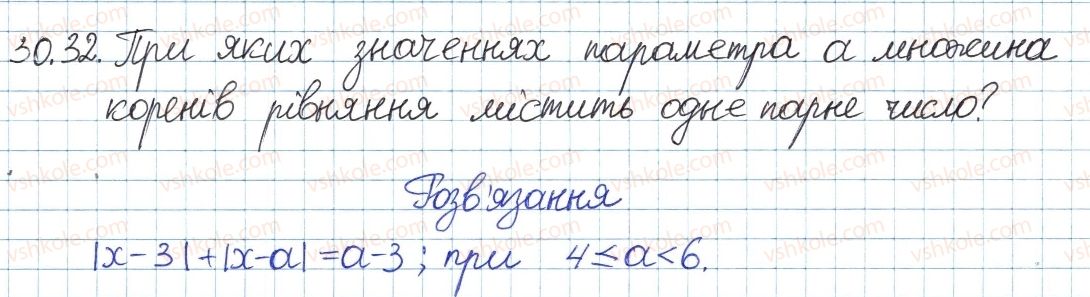 30.32. При яких значеннях параметра а множина
коренів рівняння містить одне парне число?
Розв'язання
|x-3|+|x-a|=a-3; при 4≤a<6.